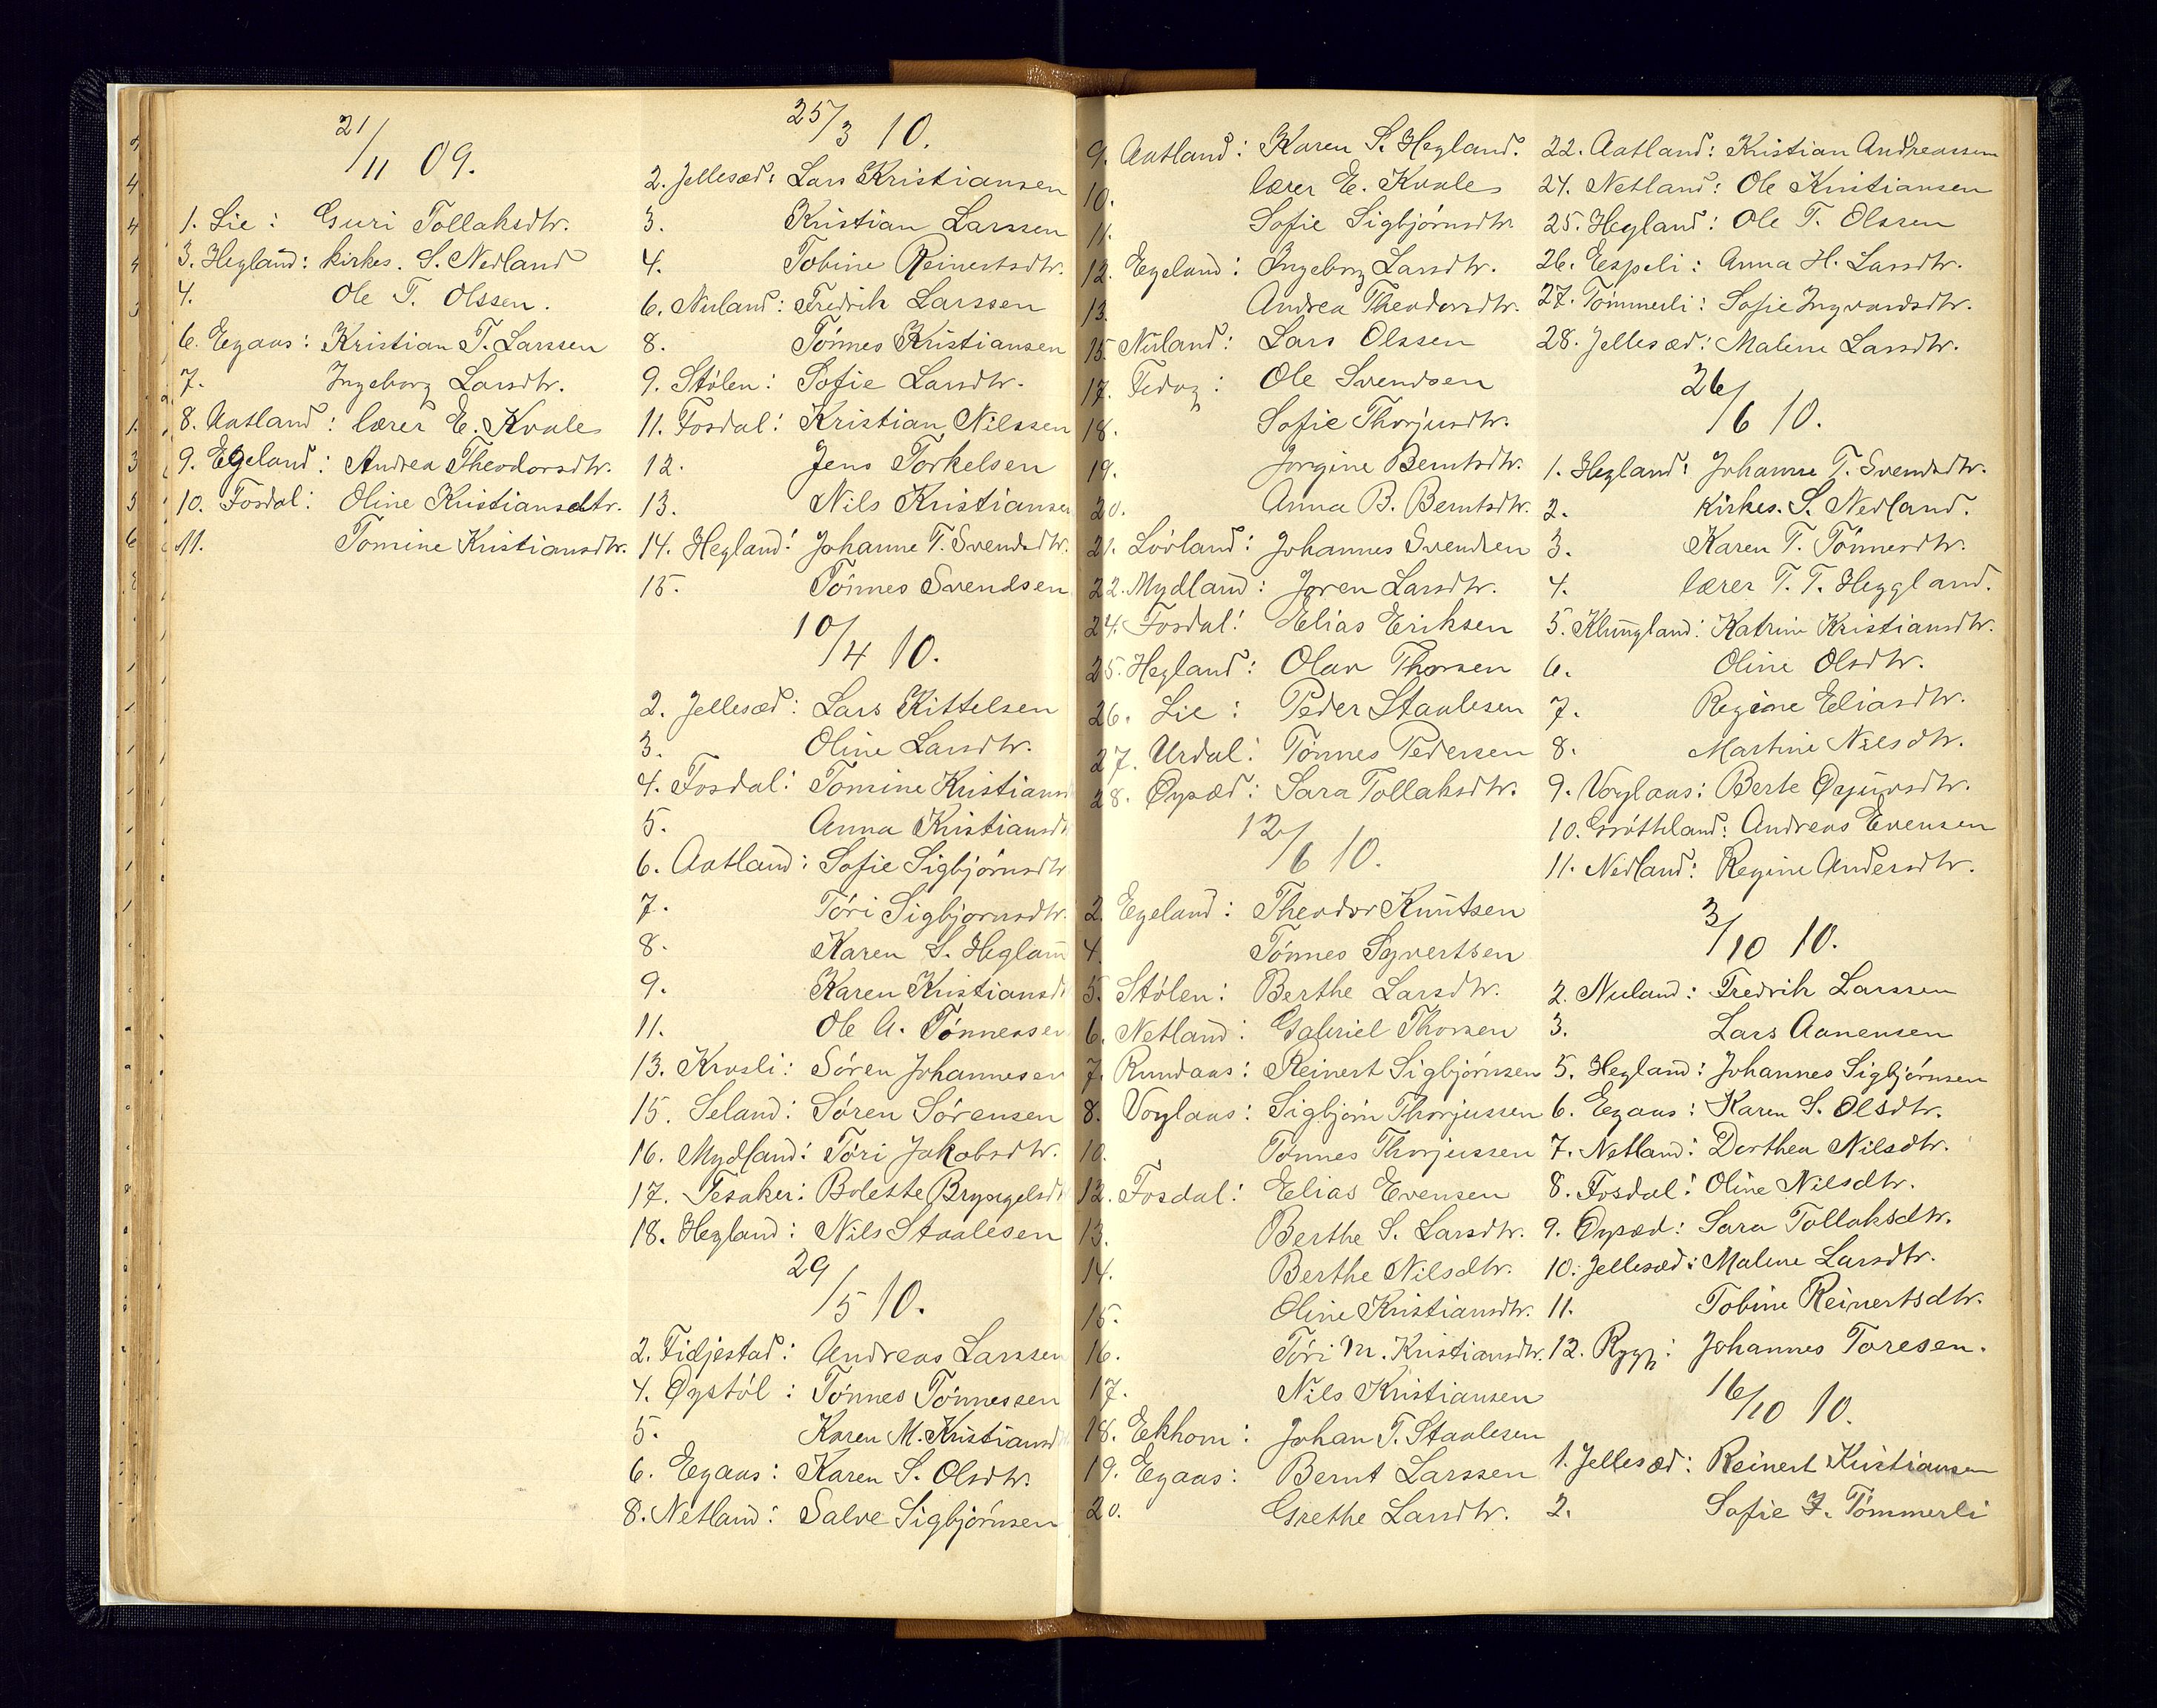 21/11 09.
1. Lie: Guri Tollaksdtr.
3. Hegland: kirkes. S. Nedland
4. Ole T. Olssen.
6. Egaas: Kristian T. Larssen
7. Ingeborg Larsdtr.
8. Aatland: lærer E. Kvale
9. Egeland: Andrea Theodorsdtr.
10. Fosdal: Oline Kristiansdtr.
11. Tomine Kristiansdtr.
25/3 10.
2. Jellesæd: Lars Kristiansen
3. Kristian Larssen
4. Tobine Reinertsdtr.
6. Nuland: Fredrik Larssen
8. Tönnes Kristiansen
9. Stölen: Sofie Larsdtr.
11. Fosdal: Kristian Nilssen
12. Jens Torkelsen
13. Nils Kristiansen
14. Hegland: Johanne T. Svendsdtr.
15. Tönnes Svendsen
10/4 10.
2. Jellesæd: Lars Kittelsen
3. Oline Larsdtr.
4. Fosdal: Tomine Kristians
5. Anna Kristiansd
6. Aatland: Sofie Sigbjörnsdtr
7. Töri Sigbjornsdtr.
8. Karen S. Heglan
9. Karen Kristiansd
11. Ole A. Tönnessen
13. Krosli: Sören Johannesen
15. Seland: Sören Sörensen
16. Mydland: Töri Jakobsdtr.
17. Tesaker: Bolette Bryngelsd
18. Hegland: Nils Staalesen
29/5 10.
2. Fidjestad: Andreas Larssen
4. Øystöl: Tönnes Tönnessen
5. Karen M. Kristiansd
6. Egaas: Karen S. Olsdtr.
8. Netland: Salve Sigbjörnsen
9. Aatland: Karen S. Hegland.
10. lærer E. Kvale
11. Sofie Sigbjörnsdtr
12. Egeland: Ingeborg Larsdtr.
13. Andrea Theodorsdtr.
15. Nuland: Lars Olssen
17. Fedog: Ole Svendsen
18. Sofie Thorjusdtr.
19. Jorgine Berntsdtr.
20. Anna B. Berntsdtr.
21. Lövland: Johannes Svendsen
22. Mydland: Joren Larsdtr.
24. Fosdal: Elias Eriksen
25. Hegland: Olav Thorsen
26. Lie: Peder Staalesen
27. Urdal: Tönnes Pedersen
28. Øysæd: Sara Tollaksdtr.
12/6 10.
2. Egeland: Theodor Knutsen
4. Tönnes Syvertsen
5. Stölen: Berthe Larsdtr.
6. Netland: Gabriel Thorsen
7. Rundaas: Reinert Sigbjörnsen
8. Voglaas: Sigbjörn Thorjussen
10. Tönnes Thorjussen
12. Fosdal: Elias Evensen
13. Berthe S. Larsdtr.
14. Berthe Nilsdtr.
15. Oline Kristiansdtr.
16. Töri M. Kristiansdtr.
17. Nils Kristiansen
18. Ekhom: Johan T. Staalesen
19. Egaas: Bernt Larssen
20. Grethe Larsdtr.
22. Aatland: Kristian Andreassen
24. Netland: Ole Kristiansen
25. Hegland: Ole T. Olssen
26. Espeli: Anna H. Larsdtr.
27. Tömmerli: Sofie Ingvardsdtr.
28. Jellesæd: Malene Larsdtr.
26/6 10.
1. Hegland: Johanne T. Svendsdtr.
2. Kirkes. S. Nedland.
3. Karen T. Tönnesdtr.
4. lærer T. T. Heggland.
5. Klungland: Katrine Kristiansdtr.
6. Oline Olsdtr.
7. Regine Eliasdtr.
8. Martine Nilsdtr.
9. Voglaas: Berte Øyuvsdtr.
10. Gröthland: Andreas Evensen
11. Nedland: Regine Andersdtr.
3/10 10.
2. Nuland: Fredrik Larssen
3. Lars Aanensen
5. Hegland: Johannes Sigbjörnsen
6. Egaas: Karen S. Olsdtr.
7. Netland: Dorthea Nilsdtr.
8. Fosdal: Oline Nilsdtr.
9. Øysæd: Sara Tollaksdtr.
10. Jellesæd: Malene Larsdtr.
11. Tobine Reinertsdtr.
12. Rygg: Johannes Toresen.
16/10 10.
1. Jellesæd: Reinert Kristiansen
2. Sofie I. Tömmerli